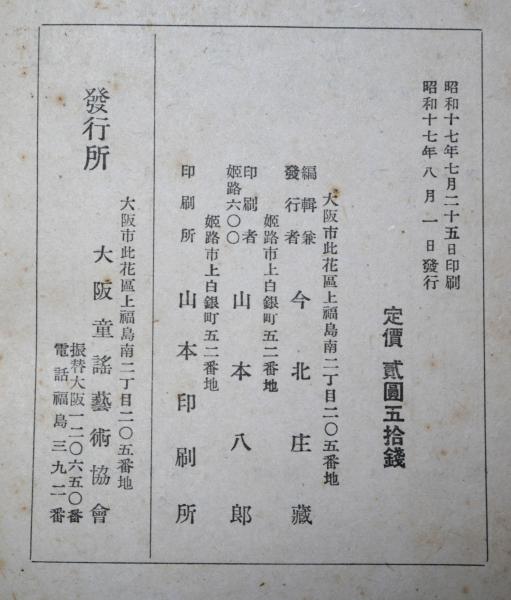 昭和十七年七月二十五日印刷
昭和十七年八月一日發行
定價 貳圓五拾錢
大阪市此花區上福島南二丁目二〇五番地
編輯兼
發行者 今北庄藏
姫路市上白銀町五二番地
印刷者
姫路六〇〇 山本八郎
姫路市上白銀町五二番地
印刷所 山本印刷所
發行所
大阪市此花區上福島南二丁目二〇五番地
大阪童謠藝術協會
振替大阪一二〇六五〇番
電話福島三九二番